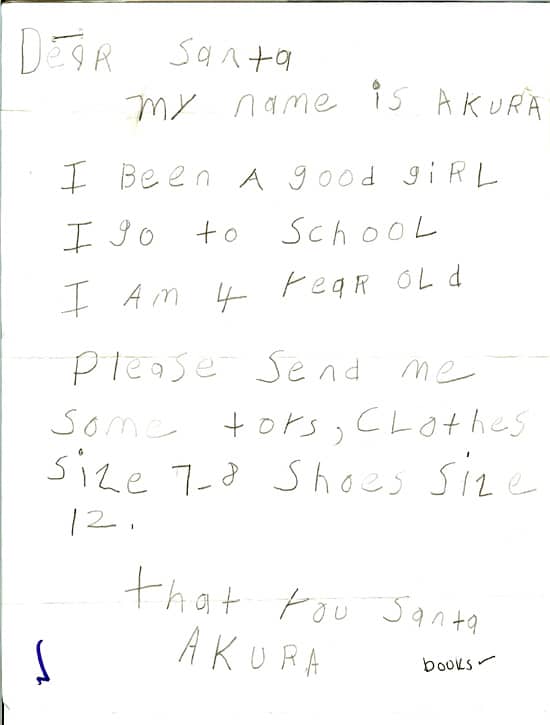 Dear Santa
my name is AKURA
I Been A good giRL
I go to SchooL
I Am 4 year oLd
Please Send me
Some toys, CLothes
Size 7-8 Shoes Size
12.
that you Santa
AKURA
books✓